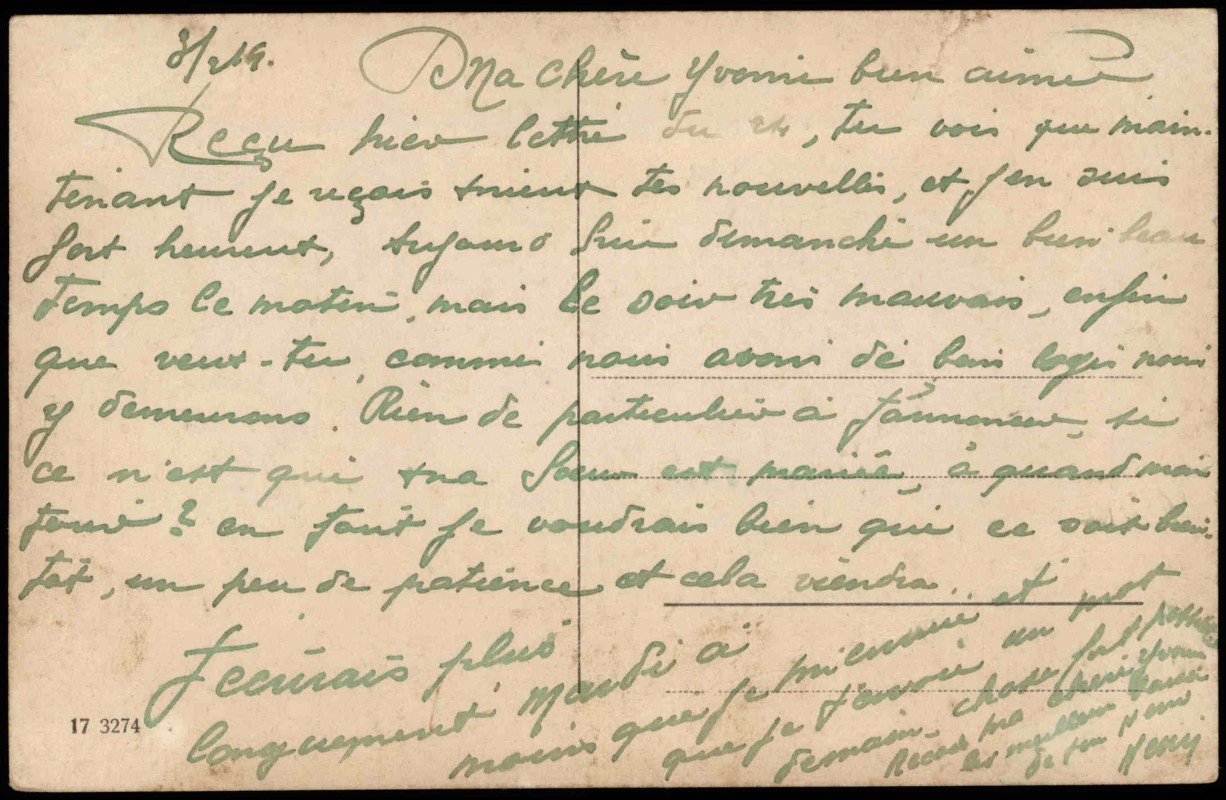 3/2 19.
Ma chère Yvonne bien aimée
Reçu hier lettre du 24, tu vois que main-
tenant je reçais mieux tes nouvelles, et j'en suis
fort heureux, aujourd hui dimanche un bien beau
temps le matin, mais le soir très mauvais, enfin
que veux-tu, comme nous avons de bons logis nous
y demeurons. Rien de particulier à t'annoncer, si
ce n'est que ma Soeur est mariée, à quand mon
tour? en tout je voudrais bien que ce soit bien-
tôt, un peu de patience et cela viendra..
J'écrirais plus
longuement Mardi à
moins que je m'ennuie et
que je t'envoie un mot
demain, chose fort possible
Reçois ma chérie Yvonne
les meilleurs baisers
de ton
Henri
17 3274